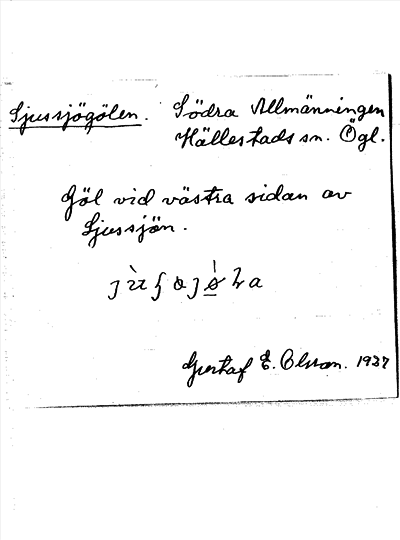 Ljussjögölen. Södra Allmänningen
Hällestads sn. Ögl.
Göl vid västra sidan av
Ljussjön.
Gustaf E. Olsson. 1937